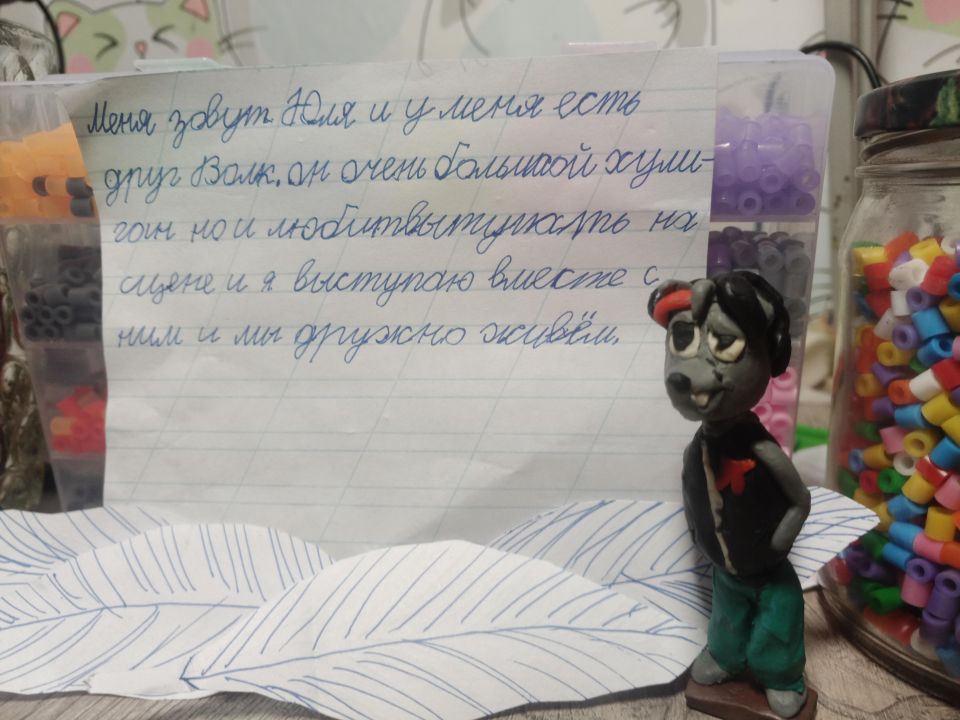 Меня зовут Юля и у меня есть
друг Волк. он очень большой хули-
ган но и любит выступать на
сцене и я выступаю вместе с
ним и мы дружно живём.